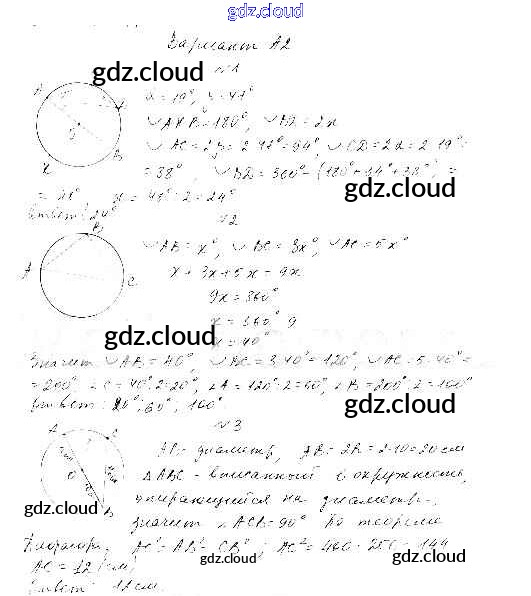 gdz.cloud
Вариант А2
gdz.cloud
№1
∪AXB = 180°, ∪BD = 2x
gdz.cloud
∪AC = 2y = 2·47° = 94°, ∪CD = 2α = 2·19° =
= 38°, ∪BD = 360° - (180° + 94° + 38°) =
gdz.cloud
Ответ: 24°
№2
∪AB = x°, ∪BC = 3x°, ∪AC = 5x°
x + 3x + 5x = 9x
9x = 360°
x = 360° 9
gdz.cloud
x = 40°
Значит ∪AB = 40°, ∪BC = 3·40° = 120°, ∪AC = 5·40° =
= 200° ∠C = 40°:2 = 20°, ∠A = 120°:2 = 60°, ∠B = 200°:2 = 100°
gdz.cloud
Ответ: 20°; 60°; 100°
№3
AB - диаметр, AB = 2R = 2·10 = 20 см
△ABC - вписанный в окружность,
gdz.cloud
опирающийся на диаметр,
значит ∠ACB = 90° По теореме
Пифагора, AC² = AB² - CB²; AC² = 400 - 256 = 144
gdz.cloud
gdz.cloud
gdz.cloud
AC = 12 (см)
Ответ: 12 см